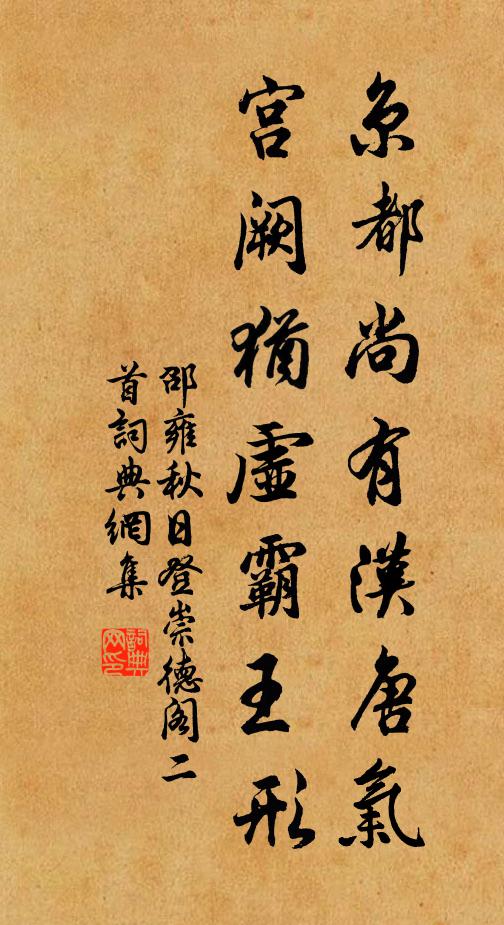 京都尚有漢唐氣
宮闕猶虛霸王形
邵雍秋日登崇德閣二
首詞典網集
詞典
网印